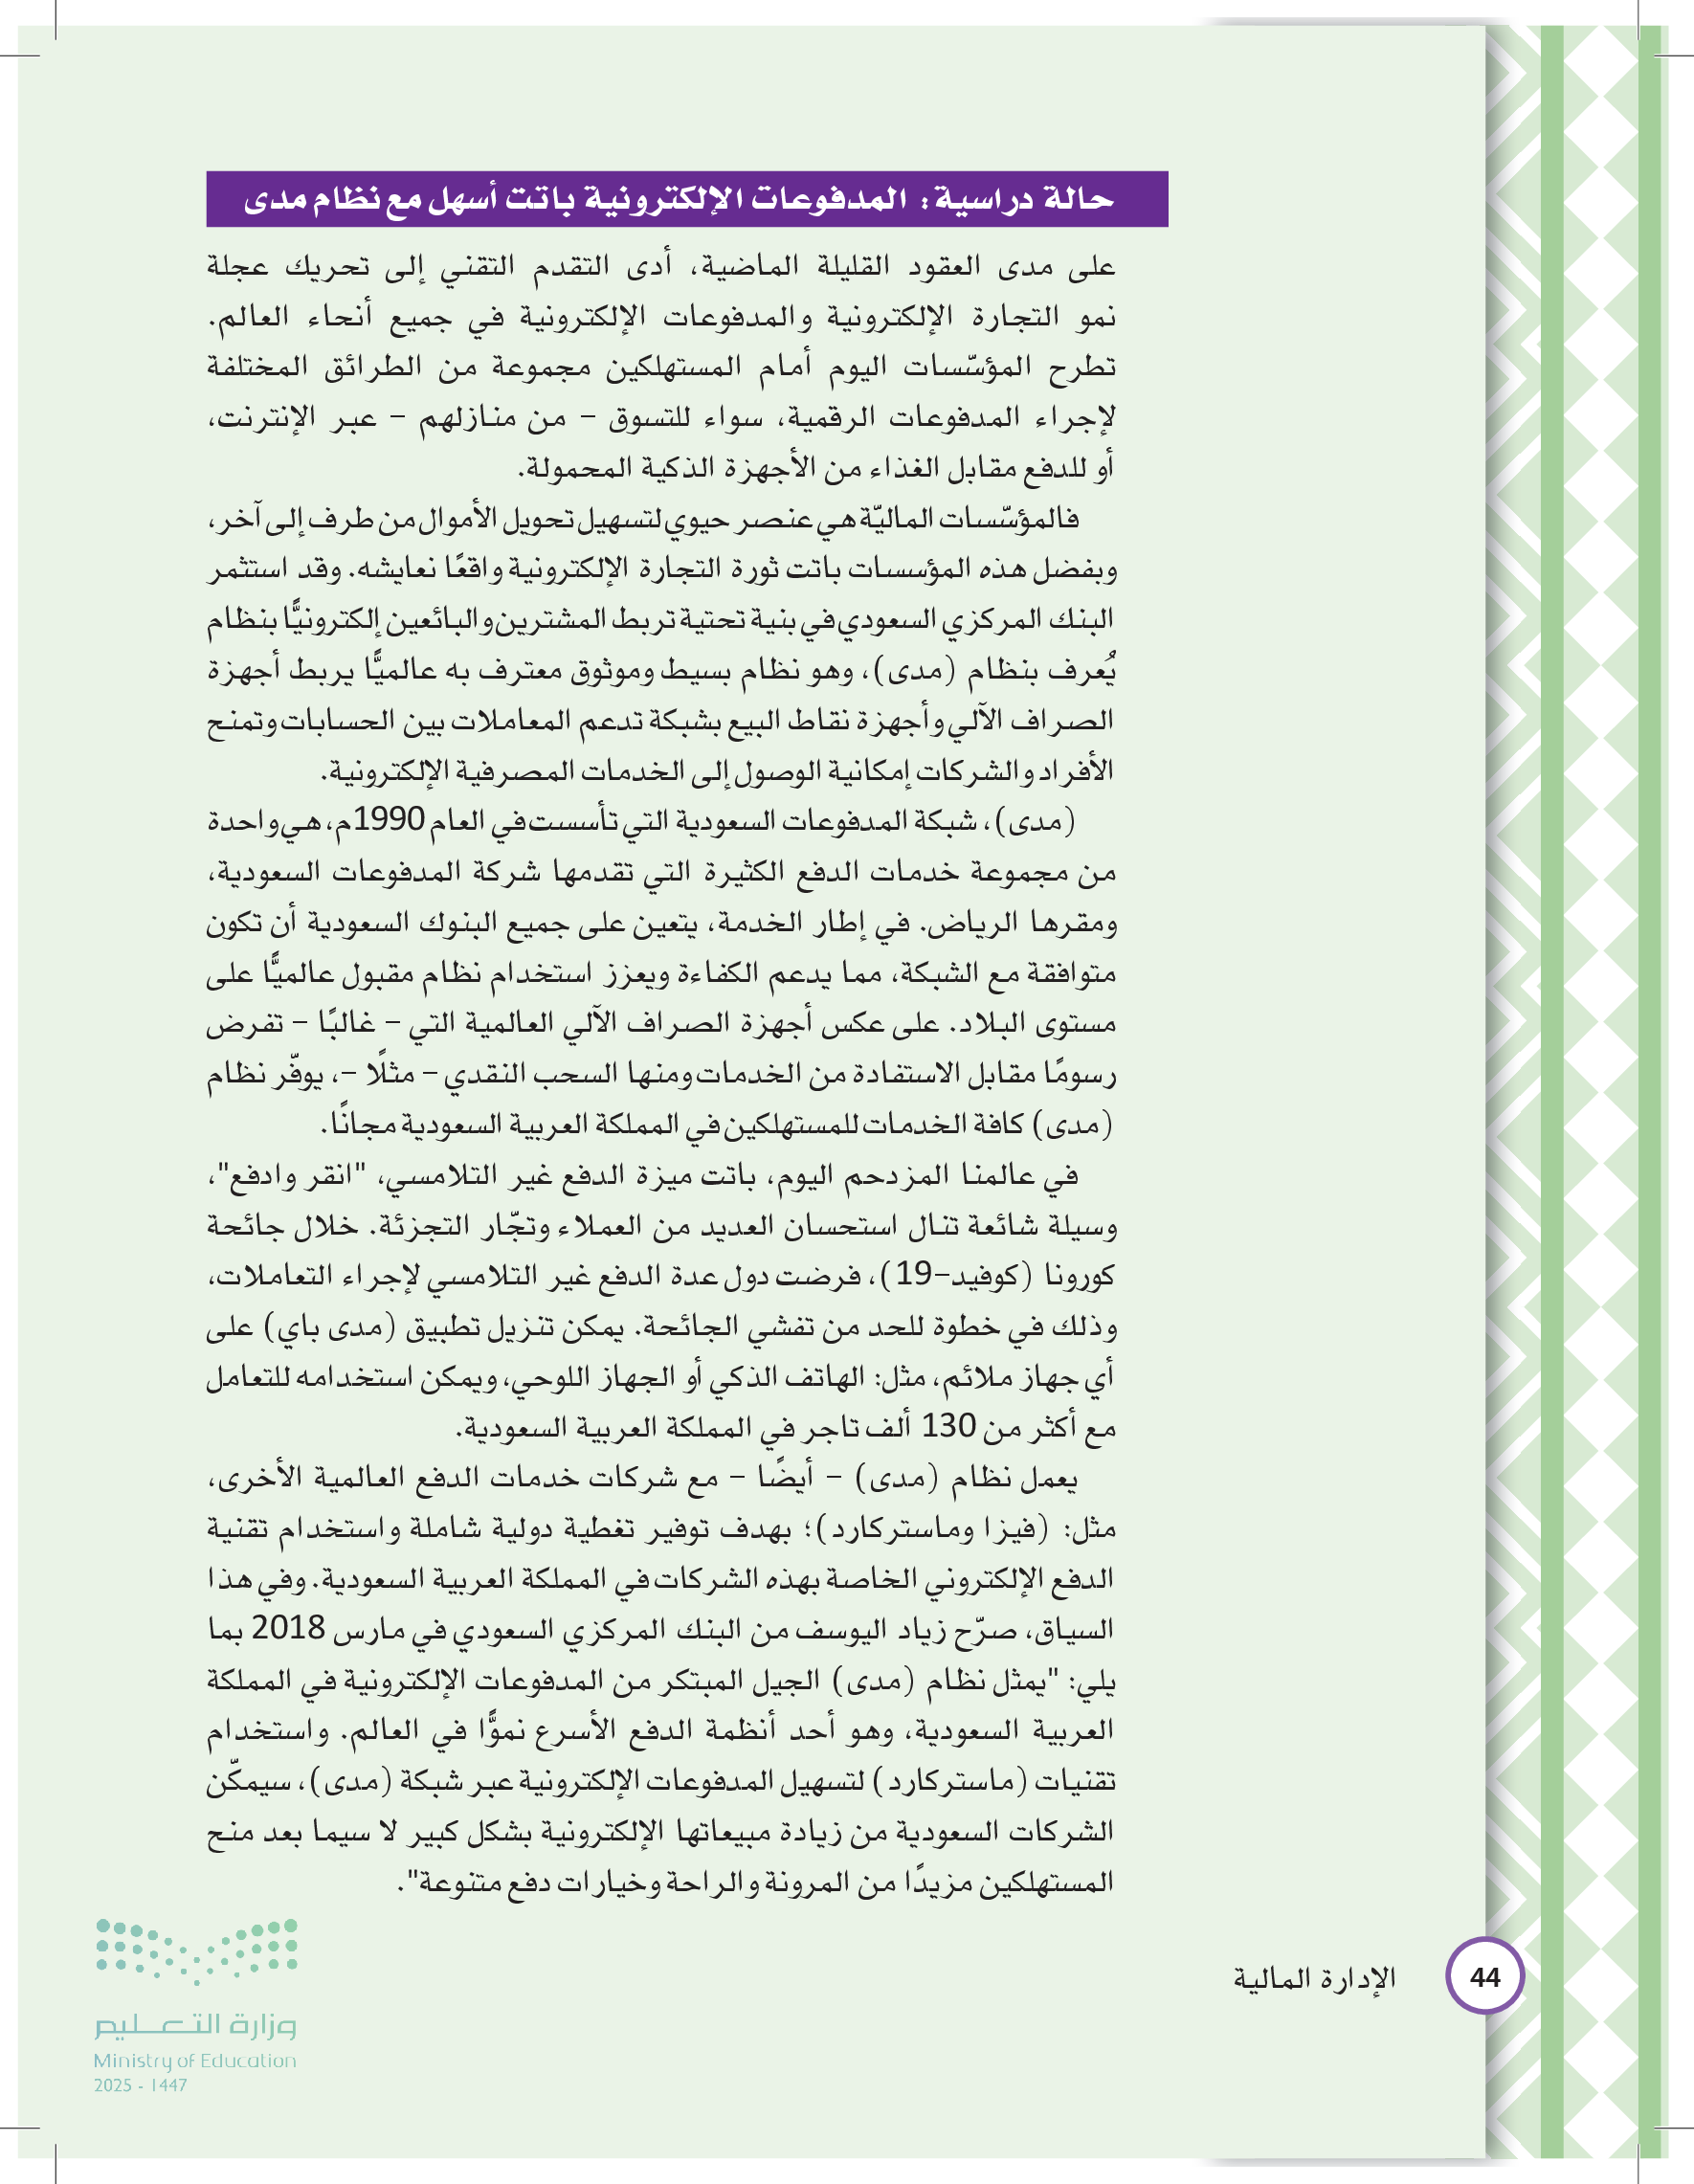 حالة دراسية: المدفوعات الإلكترونية باتت أسهل مع نظام مدى
على مدى العقود القليلة الماضية، أدى التقدم التقني إلى تحريك عجلة
نمو التجارة الإلكترونية والمدفوعات الإلكترونية في جميع أنحاء العالم.
تطرح المؤسّسات اليوم أمام المستهلكين مجموعة من الطرائق المختلفة
لإجراء المدفوعات الرقمية، سواء للتسوق – من منازلهم – عبر الإنترنت،
أو للدفع مقابل الغذاء من الأجهزة الذكية المحمولة.
فالمؤسّسات الماليّة هي عنصر حيوي لتسهيل تحويل الأموال من طرف إلى آخر،
وبفضل هذه المؤسسات باتت ثورة التجارة الإلكترونية واقعًا نعايشه. وقد استثمر
البنك المركزي السعودي في بنية تحتية تربط المشترين والبائعين إلكترونيًّا بنظام
يُعرف بنظام (مدى)، وهو نظام بسيط وموثوق معترف به عالميًّا يربط أجهزة
الصراف الآلي وأجهزة نقاط البيع بشبكة تدعم المعاملات بين الحسابات وتمنح
الأفراد والشركات إمكانية الوصول إلى الخدمات المصرفية الإلكترونية.
(مدى)، شبكة المدفوعات السعودية التي تأسست في العام 1990م، هي واحدة
من مجموعة خدمات الدفع الكثيرة التي تقدمها شركة المدفوعات السعودية،
ومقرها الرياض. في إطار الخدمة، يتعين على جميع البنوك السعودية أن تكون
متوافقة مع الشبكة، مما يدعم الكفاءة ويعزز استخدام نظام مقبول عالميًّا على
مستوى البلاد. على عكس أجهزة الصراف الآلي العالمية التي – غالبًا – تفرض
رسومًا مقابل الاستفادة من الخدمات ومنها السحب النقدي – مثلًا –، يوفّر نظام
(مدى) كافة الخدمات للمستهلكين في المملكة العربية السعودية مجانًا.
في عالمنا المزدحم اليوم، باتت ميزة الدفع غير التلامسي، "انقر وادفع"،
وسيلة شائعة تنال استحسان العديد من العملاء وتجّار التجزئة. خلال جائحة
كورونا (كوفيد–19)، فرضت دول عدة الدفع غير التلامسي لإجراء التعاملات،
وذلك في خطوة للحد من تفشي الجائحة. يمكن تنزيل تطبيق (مدى باي) على
أي جهاز ملائم، مثل: الهاتف الذكي أو الجهاز اللوحي، ويمكن استخدامه للتعامل
مع أكثر من 130 ألف تاجر في المملكة العربية السعودية.
يعمل نظام (مدى) – أيضًا – مع شركات خدمات الدفع العالمية الأخرى،
مثل: (فيزا وماستركارد)؛ بهدف توفير تغطية دولية شاملة واستخدام تقنية
الدفع الإلكتروني الخاصة بهذه الشركات في المملكة العربية السعودية. وفي هذا
السياق، صرّح زياد اليوسف من البنك المركزي السعودي في مارس 2018 بما
يلي: "يمثل نظام (مدى) الجيل المبتكر من المدفوعات الإلكترونية في المملكة
العربية السعودية، وهو أحد أنظمة الدفع الأسرع نموًّا في العالم. واستخدام
تقنيات (ماستركارد) لتسهيل المدفوعات الإلكترونية عبر شبكة (مدى)، سيمكّن
الشركات السعودية من زيادة مبيعاتها الإلكترونية بشكل كبير لا سيما بعد منح
المستهلكين مزيدًا من المرونة والراحة وخيارات دفع متنوعة".
44
الإدارة المالية
وزارة التعليم
Ministry of Education
2025 - 1447